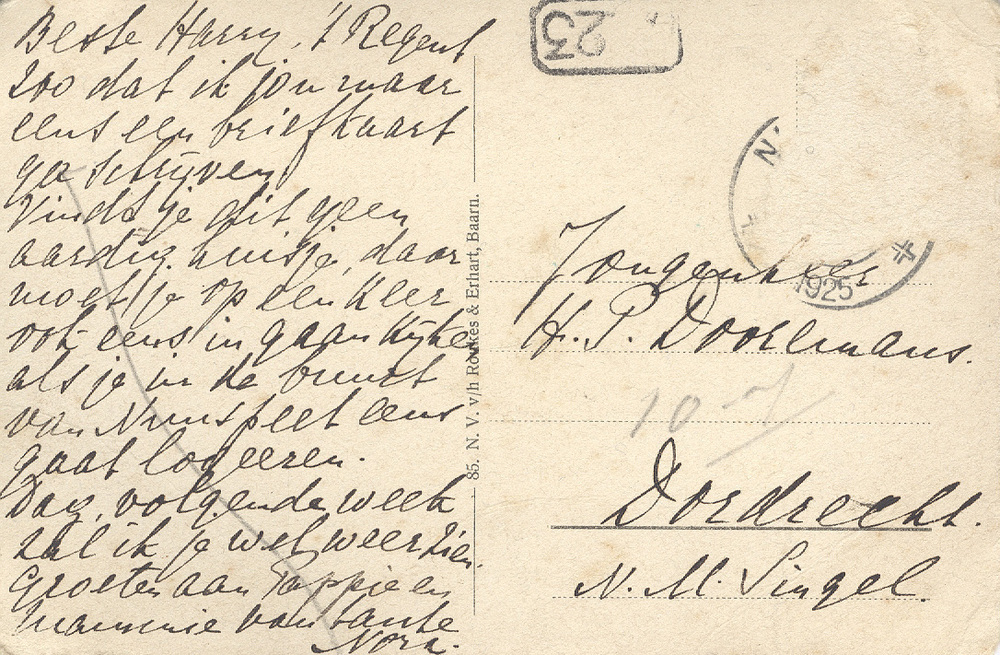 Beste Harry, 't Regent
zoo dat ik jou maar
eens een briefkaart
ga schrijven
Vindt je dit geen
aardig huisje, daar
moet je op een keer
ook eens in gaan kijken
als je in de buurt
van Nunspeet eens
gaat logeeren.
Dag, volgende week
zal ik je wel weer zien.
Groeten aan Pappie en
Mammie van tante
Nora.
85. N. V. v/h Roukes & Erhart, Baarn.
23
N.
1925
Jongenheer
H. P. Doorlmans.
10
Dordrecht.
N. M. Singel.